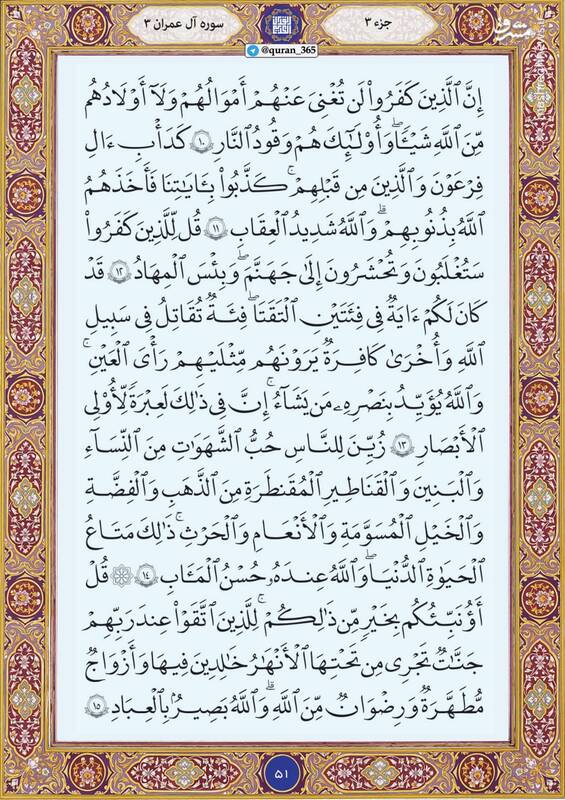 جزء ۳
سوره آل عمران ۳
@quran_365
إِنَّ ٱلَّذِينَ كَفَرُواْ لَن تُغْنِىَ عَنْهُمْ أَمْوَالُهُمْ وَلَآ أَوْلَادُهُم
مِّنَ ٱللَّهِ شَيْـًٔا ۖ وَأُوْلَـٰٓئِكَ هُمْ وَقُودُ ٱلنَّارِ ۱۰ كَدَأْبِ ءَالِ
فِرْعَوْنَ وَٱلَّذِينَ مِن قَبْلِهِمْ ۚ كَذَّبُواْ بِـَٔايَاتِنَا فَأَخَذَهُمُ
ٱللَّهُ بِذُنُوبِهِمْ ۗ وَٱللَّهُ شَدِيدُ ٱلْعِقَابِ ۱۱ قُل لِّلَّذِينَ كَفَرُواْ
سَتُغْلَبُونَ وَتُحْشَرُونَ إِلَىٰ جَهَنَّمَ ۚ وَبِئْسَ ٱلْمِهَادُ ۱۲ قَدْ
كَانَ لَكُمْ ءَايَةٌ فِى فِئَتَيْنِ ٱلْتَقَتَا ۖ فِئَةٌ تُقَاتِلُ فِى سَبِيلِ
ٱللَّهِ وَأُخْرَىٰ كَافِرَةٌ يَرَوْنَهُم مِّثْلَيْهِمْ رَأْىَ ٱلْعَيْنِ ۚ
وَٱللَّهُ يُؤَيِّدُ بِنَصْرِهِۦ مَن يَشَآءُ ۗ إِنَّ فِى ذَٰلِكَ لَعِبْرَةً لِّأُوْلِى
ٱلْأَبْصَارِ ۱۳ زُيِّنَ لِلنَّاسِ حُبُّ ٱلشَّهَوَاتِ مِنَ ٱلنِّسَآءِ
وَٱلْبَنِينَ وَٱلْقَنَاطِيرِ ٱلْمُقَنطَرَةِ مِنَ ٱلذَّهَبِ وَٱلْفِضَّةِ
وَٱلْخَيْلِ ٱلْمُسَوَّمَةِ وَٱلْأَنْعَامِ وَٱلْحَرْثِ ۗ ذَٰلِكَ مَتَاعُ
ٱلْحَيَوٰةِ ٱلدُّنْيَا ۖ وَٱللَّهُ عِندَهُۥ حُسْنُ ٱلْمَـَٔابِ ۱۴ ۞ قُلْ
أَؤُنَبِّئُكُم بِخَيْرٍ مِّن ذَٰلِكُمْ ۚ لِلَّذِينَ ٱتَّقَوْاْ عِندَ رَبِّهِمْ
جَنَّاتٌ تَجْرِى مِن تَحْتِهَا ٱلْأَنْهَارُ خَالِدِينَ فِيهَا وَأَزْوَاجٌ
مُّطَهَّرَةٌ وَرِضْوَانٌ مِّنَ ٱللَّهِ ۗ وَٱللَّهُ بَصِيرٌۢ بِٱلْعِبَادِ ۱۵
۵۱